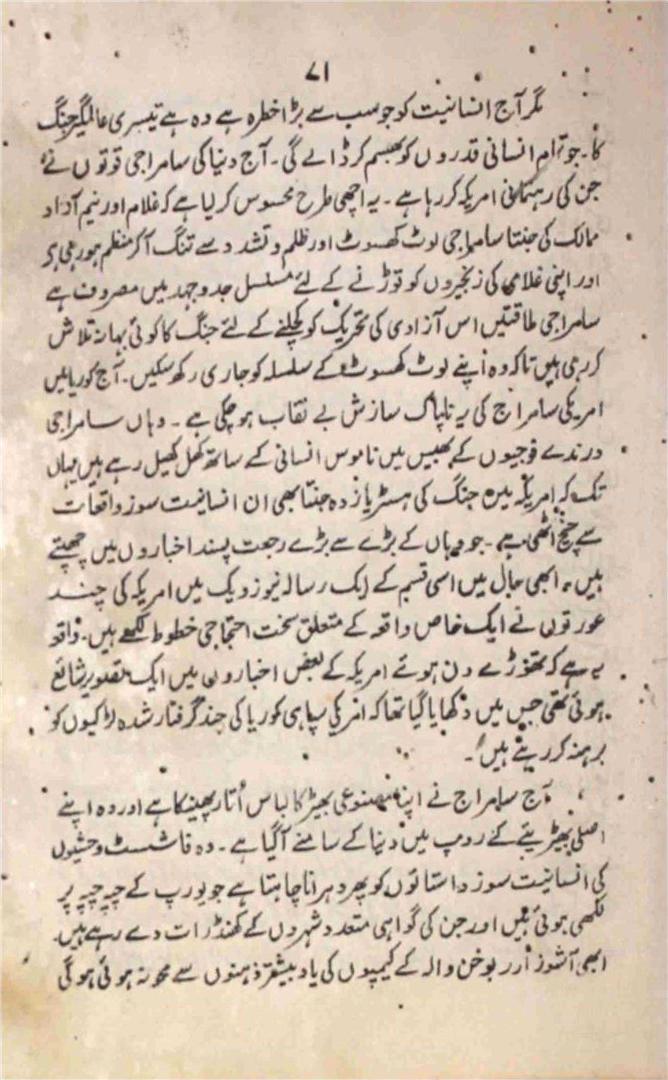 ۷۱
مگر آج انسانیت کو جو سب سے بڑا خطرہ ہے وہ ہے تیسری عالمگیر جنگ
کا۔ جو تمام انسانی قدروں کو بھسم کر ڈالے گی۔ آج دنیا کی سامراجی قوتوں نے
جن کی رہنمائی امریکہ کر رہا ہے۔ یہ اچھی طرح محسوس کر لیا ہے کہ غلام اور نیم آزاد
ممالک کی جنتا سامراجی لوٹ کھسوٹ اور ظلم و تشدد سے تنگ آکر منظم ہو رہی ہے
اور اپنی غلامی کی زنجیروں کو توڑنے کے لئے مسلسل جدوجہد میں مصروف ہے
سامراجی طاقتیں اس آزادی کی تحریک کو کچلنے کے لئے جنگ کا کوئی بہانہ تلاش
کر رہی ہیں تاکہ وہ اپنے لوٹ کھسوٹ کے سلسلہ کو جاری رکھ سکیں۔ آج کوریا میں
امریکی سامراج کی یہ ناپاک سازش بے نقاب ہو چکی ہے۔ وہاں سامراجی
درندے فوجیوں کے بھیس میں ناموس انسانی کے ساتھ کھل کھیل رہے ہیں یہاں
تک کہ امریکہ میں جنگ کی ہسٹریا زدہ جنتا بھی ان انسانیت سوز واقعات
سے چیخ اٹھی ہے۔ جو وہاں کے بڑے سے بڑے رجعت پسند اخباروں میں چھپتے
ہیں۔ ابھی حال میں اسی قسم کے ایک رسالہ نیوز ویک میں امریکہ کی چند
عورتوں نے ایک خاص واقعہ کے متعلق سخت احتجاجی خطوط لکھے ہیں۔ واقعہ
یہ ہے کہ تھوڑے دن ہوئے امریکہ کے بعض اخباروں میں ایک تصویر شائع
ہوئی تھی جس میں دکھایا گیا تھا کہ امریکی سپاہی کوریا کی چند گرفتار شدہ لڑکیوں کو
برہنہ کر رہے ہیں۔
آج سامراج نے اپنا مصنوعی بھیڑ کا لباس اُتار پھینکا ہے اور وہ اپنے
اصلی بھیڑیئے کے روپ میں دنیا کے سامنے آگیا ہے۔ وہ فاشسٹ وحشیوں
کی انسانیت سوز داستانوں کو پھر دہرانا چاہتا ہے جو یورپ کے چپے چپے پر
لکھی ہوئی ہیں اور جن کی گواہی متعدد شہروں کے کھنڈرات دے رہے ہیں۔
ابھی آشوز اور بوخن والد کے کیمپوں کی یاد بیشتر ذہنوں سے محو نہ ہوئی ہوگی